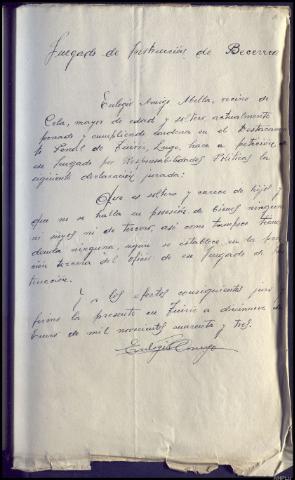 Juzgado de Instrucción de Becerreá
Eulogio Amigo Abella, vecino de
Cela, mayor de edad y soltero, actualmente
penado y cumpliendo condena en el Destacamen-
to Penal de Incio, Lugo, hace a petición de
ese Juzgado por Responsabilidades Políticas la
siguiente declaración jurada:
Que es soltero y carece de hijos y
que no se halla en posesión de bienes ningunos
ni suyos ni de terceros, así como tampoco tiene
deuda ninguna, según se establece en la
ción tercera del oficio de ese Juzgado de Ins-
trucción.
Y a los efectos consiguientes juro y
firmo la presente en Incio a de
Enero de mil novecientos cuarenta y tres.
Eulogio Amigo